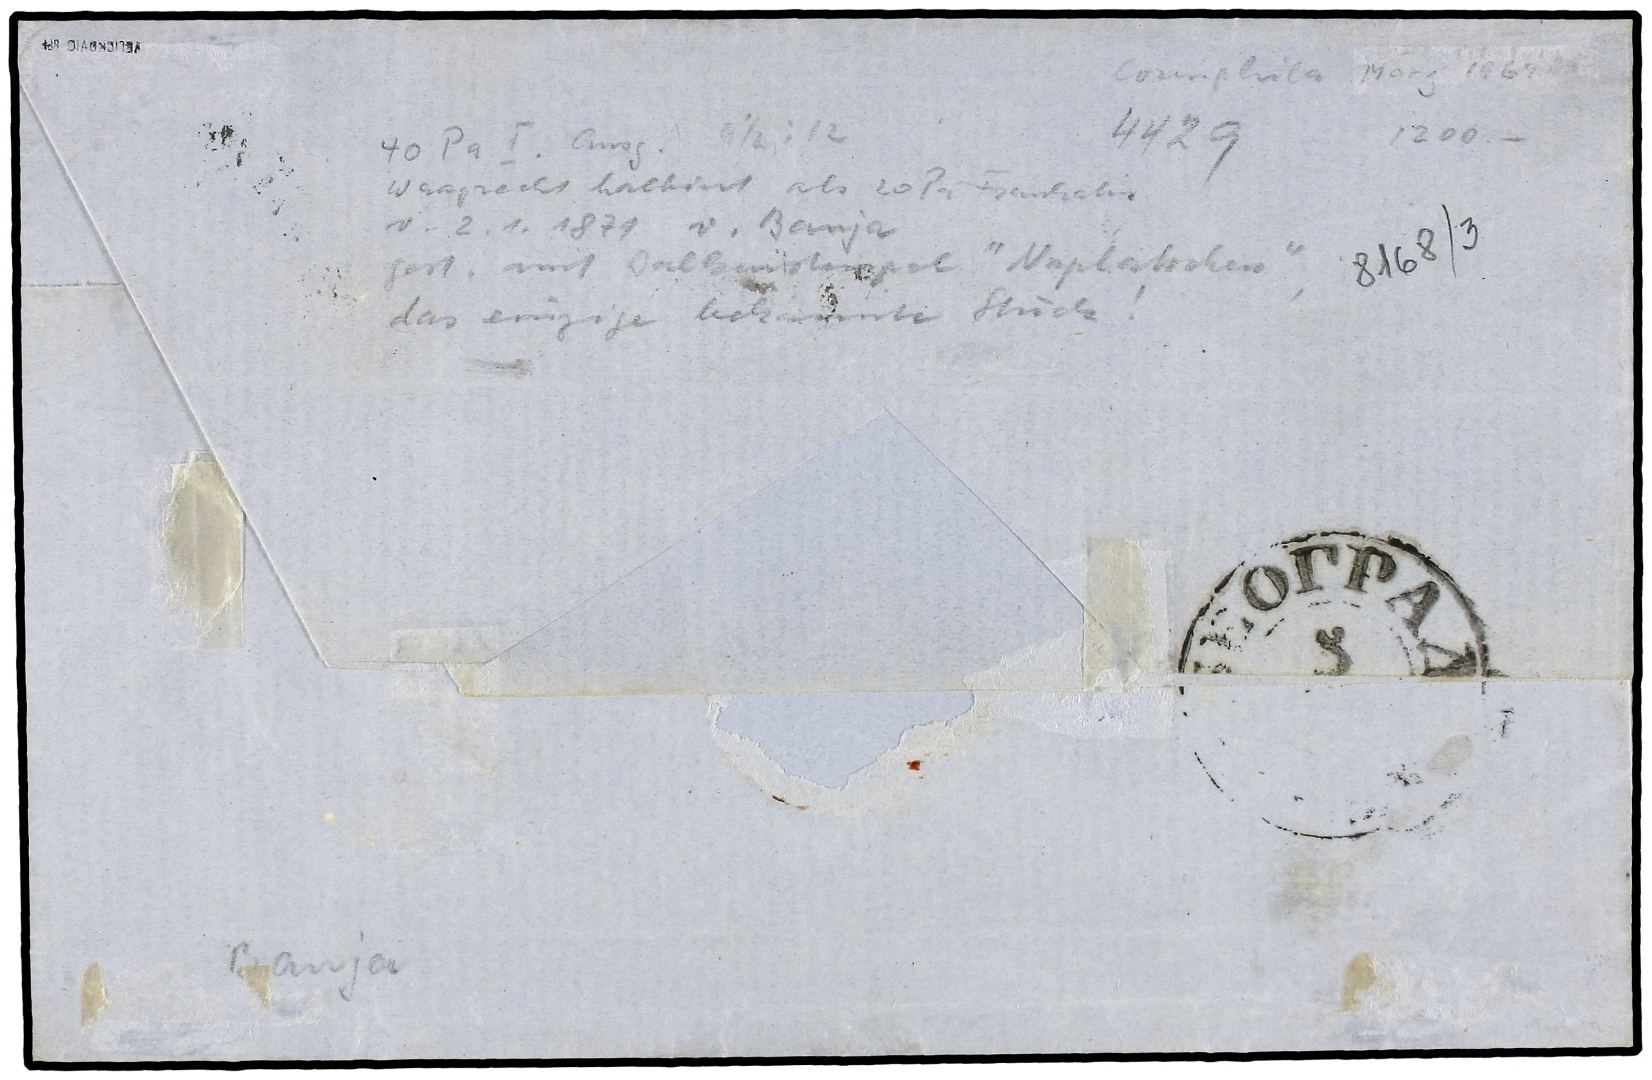 VELICKOVIC BPP
Corinphila März 1969
4429 1200.—
40 Pa I. Ausg. 9½:12
Waagrecht halbiert als 20 Pa Frankatur
v. 2.1.1871 v. Banja
gest. mit Balkenstempel "Naplatocheno",
das einzige bekannte Stück!
8168/3
БЕОГРАД
5
Banja